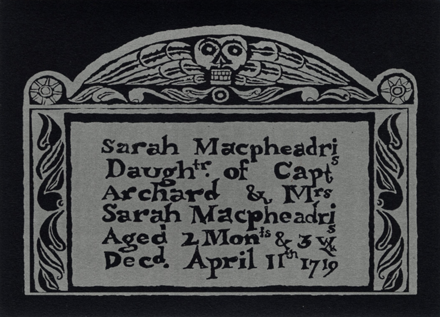 Sarah Macpheadris
Daughtr. of Capt
Archard & Mrs
Sarah Macpheadris
Aged 2 Monts & 3 Ws
Decd. April 11th 1719